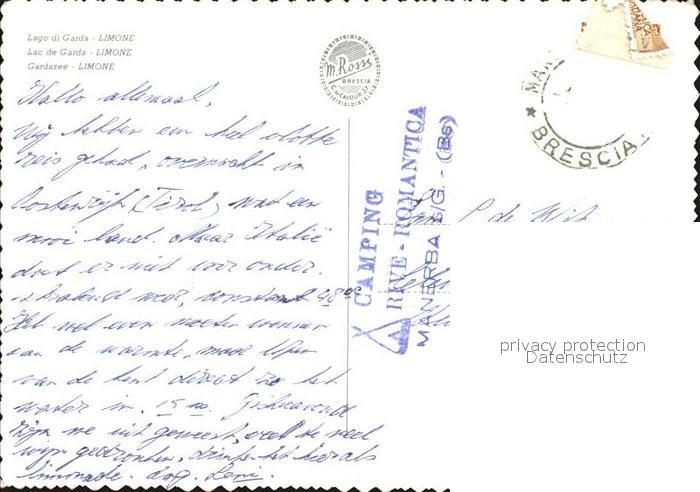 Lago di Garda - LIMONE
Lac de Garda - LIMONE
Gardazee - LIMONE
M. Rossi
BRESCIA
C. CAVOUR 37
MAN
* BRESCIA
Hallo allemaal,
Wij hebben een heel vlotte
reis gehad, overnacht in
Oostenrijk (Tirol) wat een
mooi land. Maar Italië
doet er niet voor onder.
Stralend weer, constant 40°
Het wel even moeten wennen
aan de warmte, maar lopen
van de tent direct zo het
water in. 15 m. Gisteravond
zijn we uit geweest, veel te veel
wijn gedronken, drinken het hier als
limonade. dag.
CAMPING
RIVE-ROMANTICA
MANERBA S/G. - (Bs)
P de Wit
privacy protection
Datenschutz